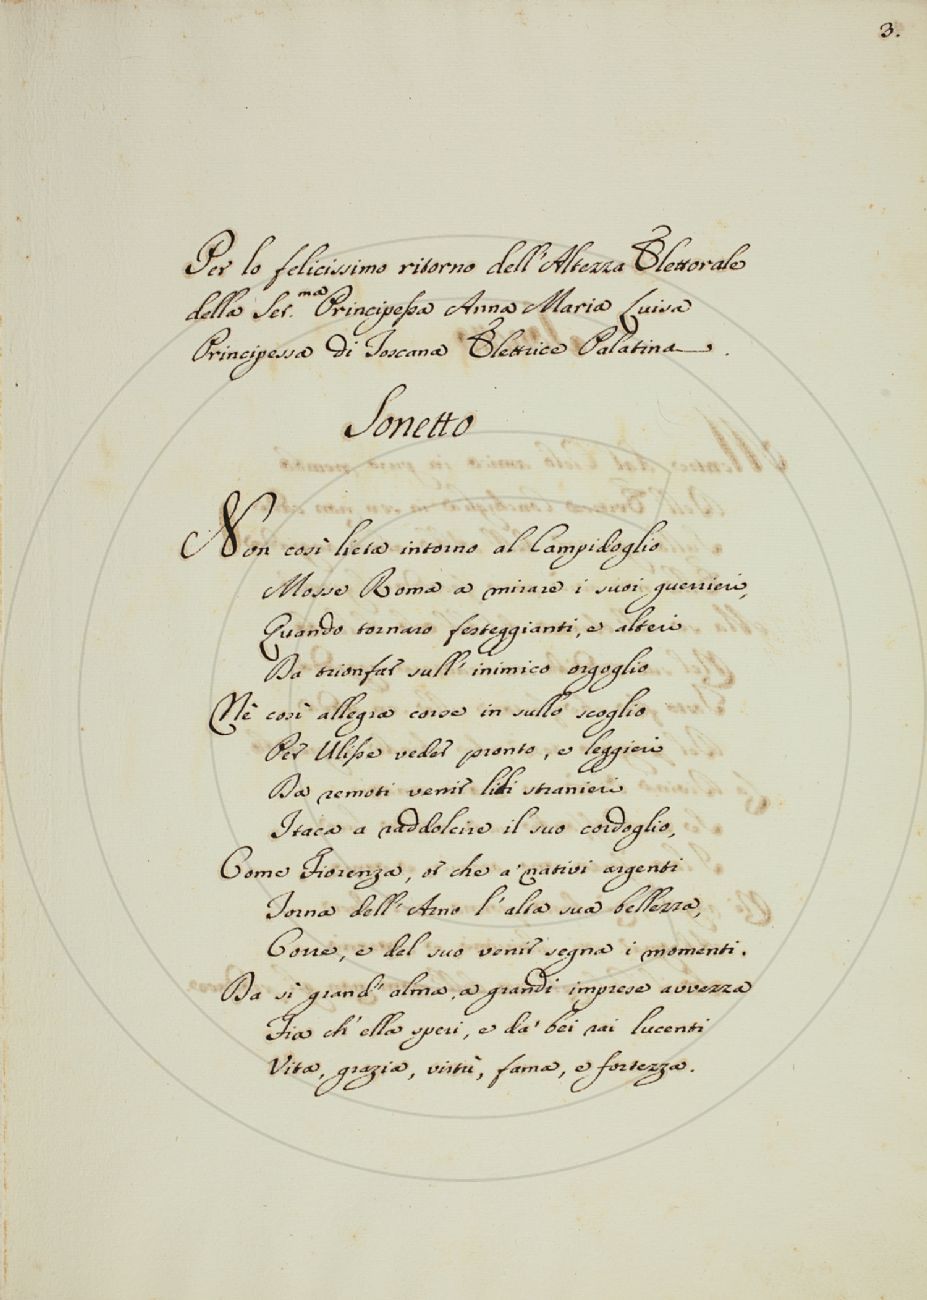 3.
Per lo felicissimo ritorno dell'Altezza Elettorale
della Ser.ma Principessa Anna Maria Luisa
Principessa di Toscana Elettrice Palatina.
Sonetto
Non così lieta intorno al Campidoglio
Mosse Roma a mirare i suoi guerrieri,
Quando tornaro festeggianti, e alteri
Da trionfar sull' inimico orgoglio
Nè così allegra corse in sullo scoglio
Per Ulisse veder pronto, e leggieri
Da remoti venir liti stranieri
Itaca a raddolcire il suo cordoglio,
Come Fiorenza, or che a' nativi argenti
Torna dell' Arno l' alta sua bellezza,
Corre, e del suo venir segna i momenti.
Da sì grand' alma, a grandi imprese avvezza
Fia ch' ella speri, e da' bei rai lucenti
Vita, grazia, virtù, fama, e fortezza.